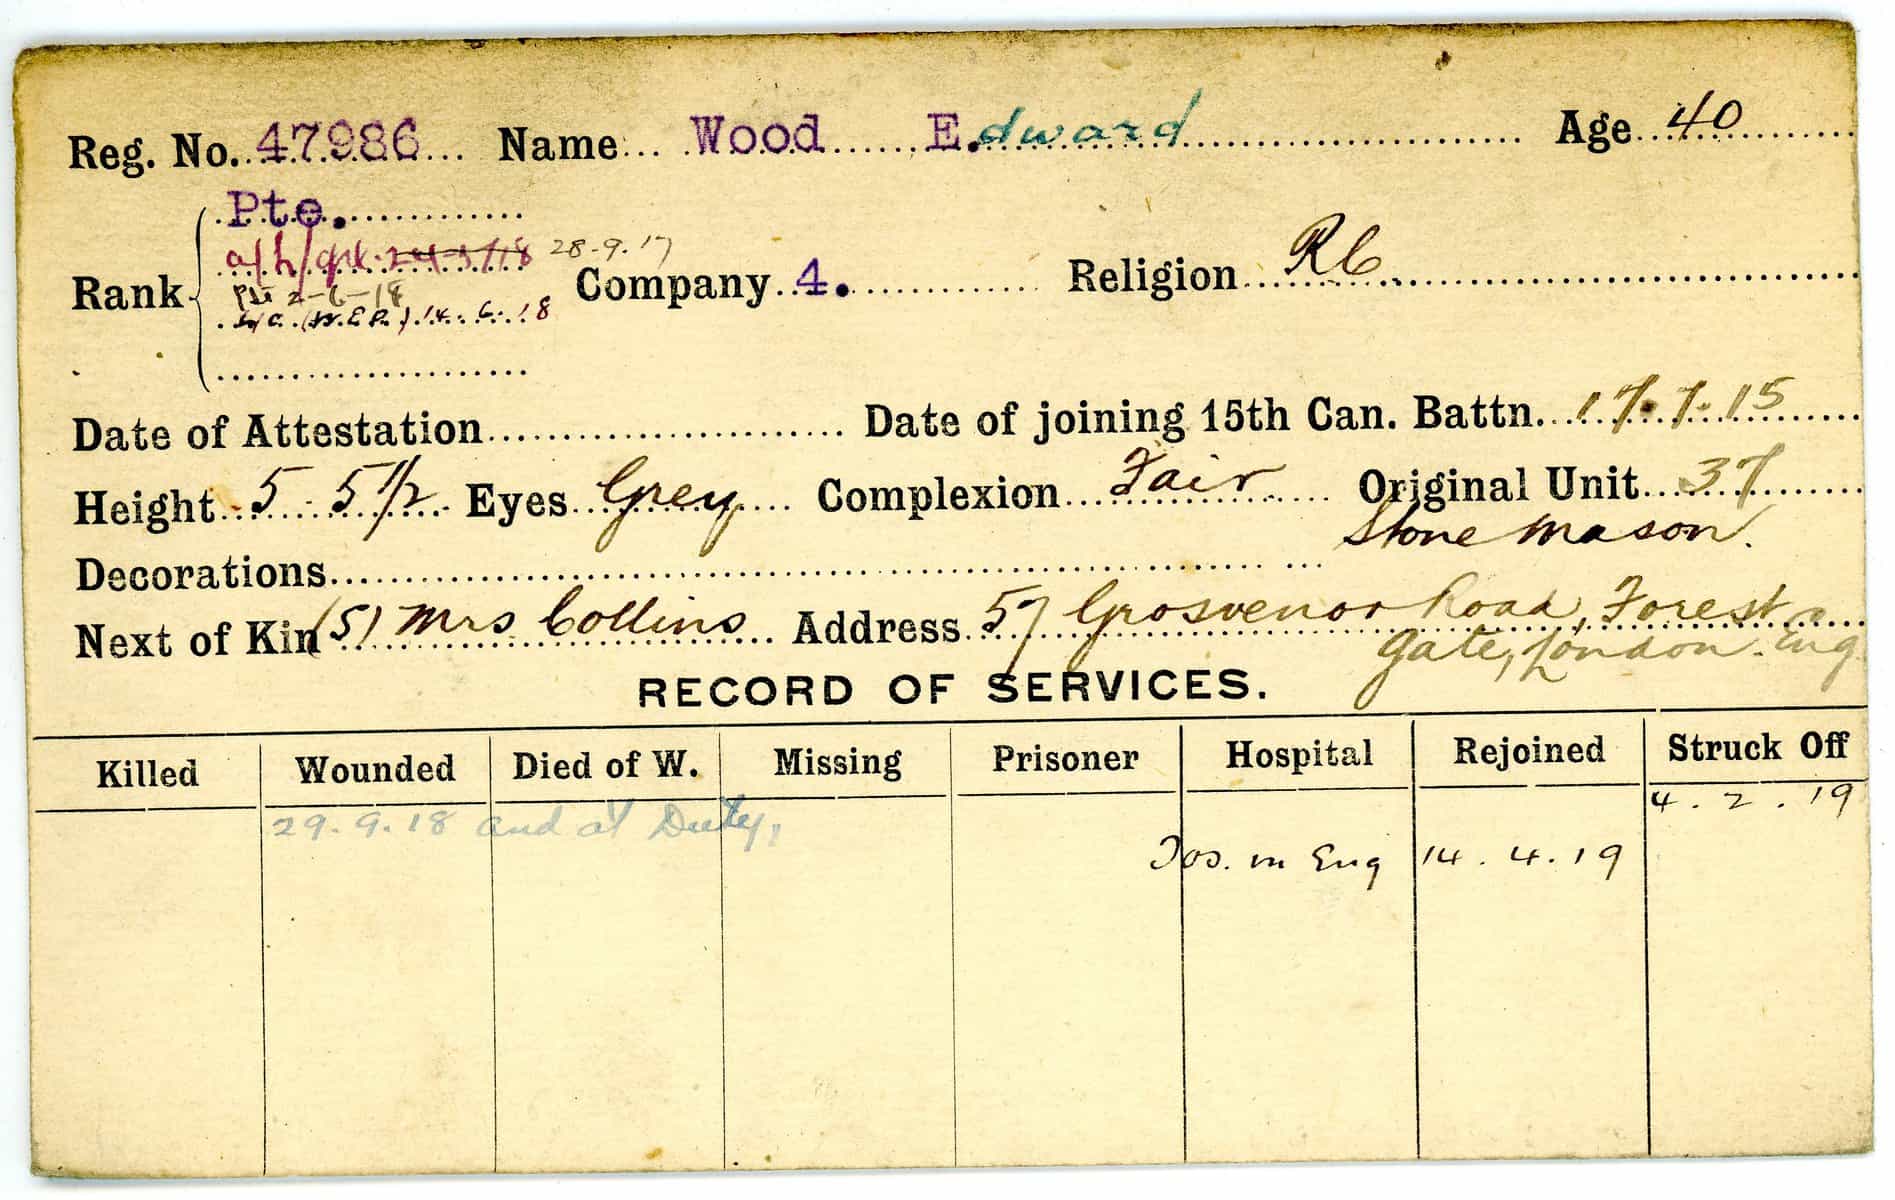 Reg. No. 47986 Name Wood E.dward Age 40
Pte.
a/L/Cpl. 24-3-18 28-9-17
Rank Company 4. Religion RC
Pte 2-6-18
L/C. (W.E.P.) 14.6.18
Date of Attestation Date of joining 15th Can. Battn. 17.7.15
Height 5 5 1/2 Eyes Grey Complexion Fair Original Unit 37
Stone Mason.
Decorations
Next of Kin (S) Mrs Collins Address 57 Grosvenor Road, Forest
Gate, London. Eng
RECORD OF SERVICES.
Killed Wounded Died of W. Missing Prisoner Hospital Rejoined Struck Off
4.2.19
29.9.18 and at Duty,
Tos. in Eng 14.4.19